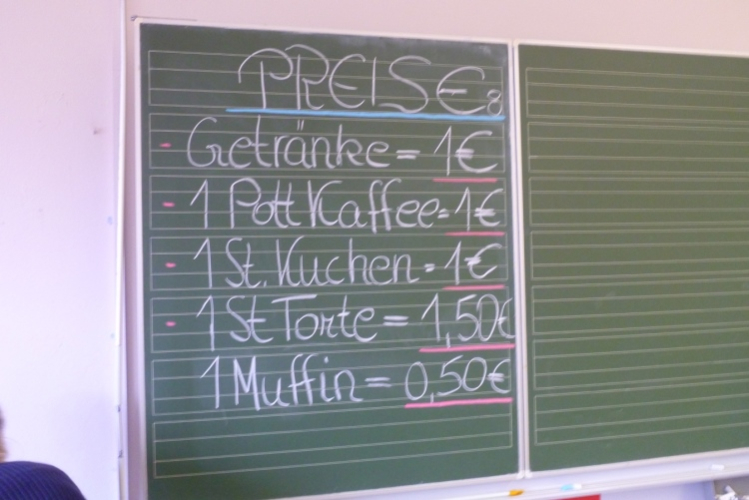 PREISE:
- Getränke = 1€
- 1 Pott Kaffee = 1€
- 1 St. Kuchen = 1€
- 1 St Torte = 1,50€
1 Muffin = 0,50€